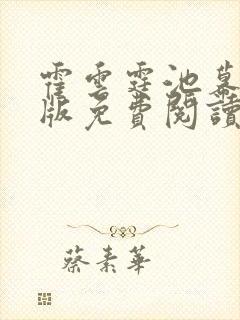 霍雲霆池幕
版免費閱讀
蔡素華